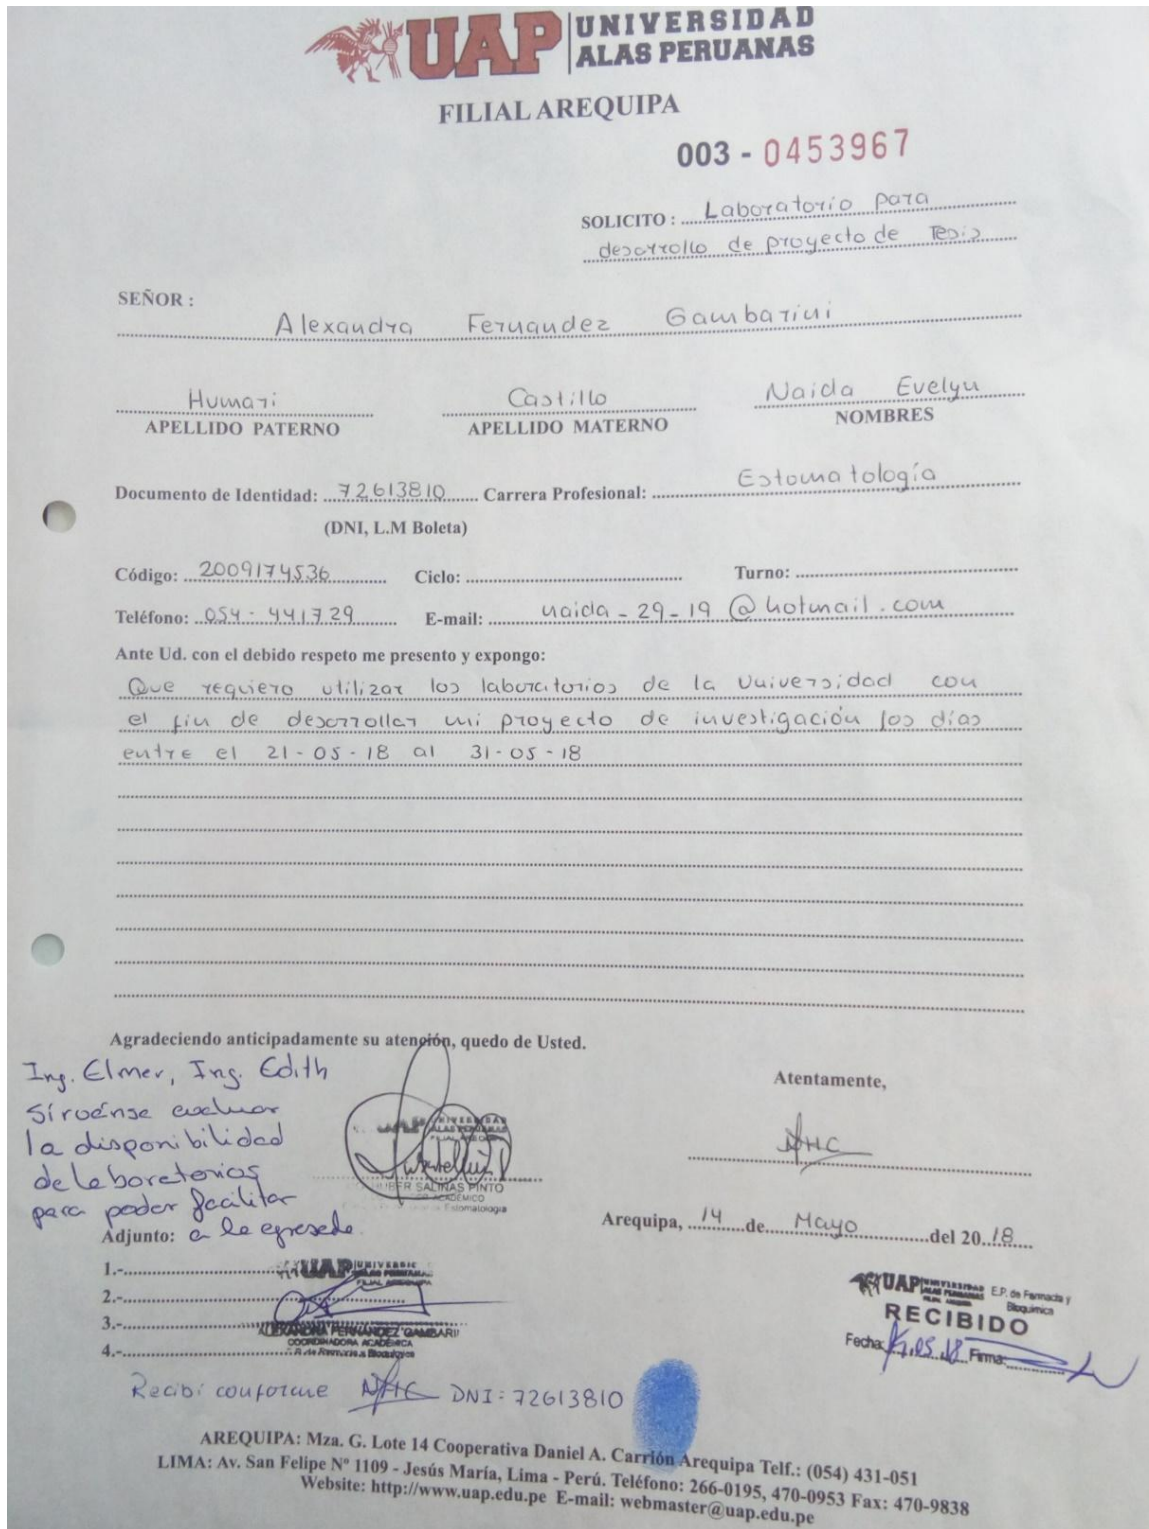 UAP UNIVERSIDAD
ALAS PERUANAS
FILIAL AREQUIPA
003 - 0453967
SOLICITO : Laboratorio para
desarrollo de proyecto de Tesis
SEÑOR :
Alexandra Fernandez Gambarini
Humari Castillo Naida Evelyn
APELLIDO PATERNO APELLIDO MATERNO NOMBRES
Documento de Identidad: 72613810 Carrera Profesional: Estomatología
(DNI, L.M Boleta)
Código: 2009174536 Ciclo: Turno:
Teléfono: 054-441729 E-mail: naida-29-19@hotmail.com
Ante Ud. con el debido respeto me presento y expongo:
Que requiero utilizar los laboratorios de la Universidad con
el fin de desarrollar mi proyecto de investigación los días
entre el 21-05-18 al 31-05-18
Agradeciendo anticipadamente su atención, quedo de Usted.
Ing. Elmer, Ing. Edith
Sírvanse evaluar
la disponibilidad
de laboratorios
para poder facilitar
a la egresada.
UAP UNIVERSIDAD
ALAS PERUANAS
FILIAL AREQUIPA
SALINAS PINTO
ACADÉMICO
Estomatología
Atentamente,
NHC
Arequipa, 14 de Mayo del 2018
Adjunto:
1.-
2.-
3.-
4.-
UAP UNIVERSIDAD
ALAS PERUANAS
FILIAL AREQUIPA
ALEXANDRA FERNANDEZ GAMBARI
COORDINADORA ACADÉMICA
UAP UNIVERSIDAD
ALAS PERUANAS
FILIAL AREQUIPA
E.P. de Farmacia y
Bioquímica
RECIBIDO
Fecha: .05.18 Firma:
Recibí conforme NHC DNI: 72613810
AREQUIPA: Mza. G. Lote 14 Cooperativa Daniel A. Carrión Arequipa Telf.: (054) 431-051
LIMA: Av. San Felipe Nº 1109 - Jesús María, Lima - Perú. Teléfono: 266-0195, 470-0953 Fax: 470-9838
Website: http://www.uap.edu.pe E-mail: webmaster@uap.edu.pe